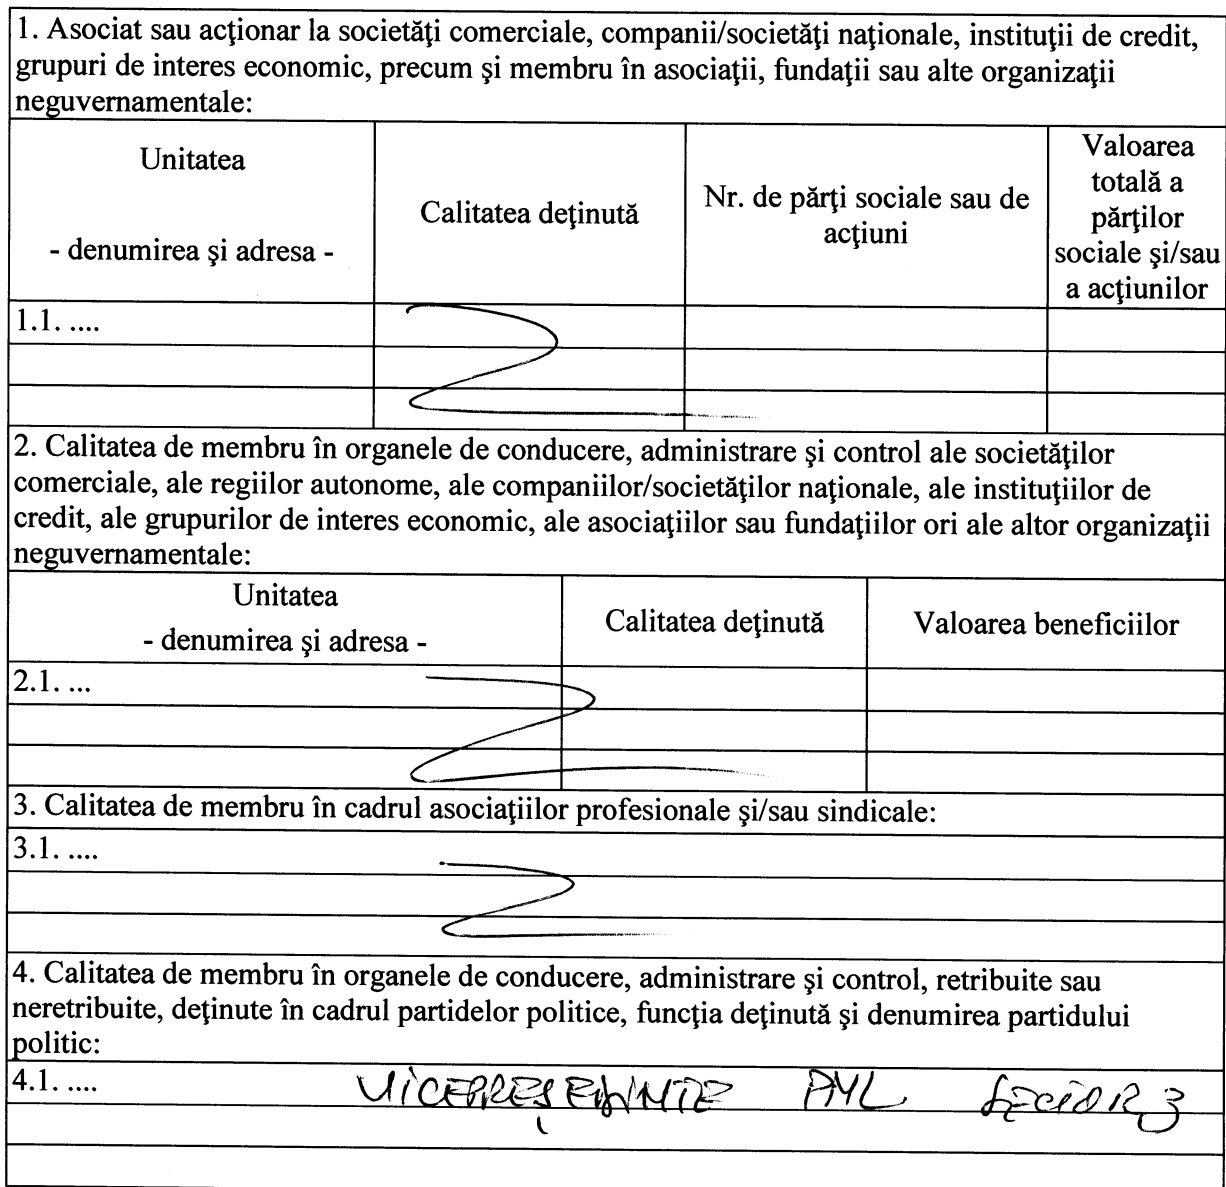 1. Asociat sau acţionar la societăţi comerciale, companii/societăţi naţionale, instituţii de credit,
grupuri de interes economic, precum şi membru în asociaţii, fundaţii sau alte organizaţii
neguvernamentale:
Unitatea
- denumirea şi adresa -
Calitatea deţinută
Nr. de părţi sociale sau de
acţiuni
Valoarea
totală a
părţilor
sociale şi/sau
a acţiunilor
1.1. ....
2. Calitatea de membru în organele de conducere, administrare şi control ale societăţilor
comerciale, ale regiilor autonome, ale companiilor/societăţilor naţionale, ale instituţiilor de
credit, ale grupurilor de interes economic, ale asociaţiilor sau fundaţiilor ori ale altor organizaţii
neguvernamentale:
Unitatea
- denumirea şi adresa -
Calitatea deţinută
Valoarea beneficiilor
2.1. ...
3. Calitatea de membru în cadrul asociaţiilor profesionale şi/sau sindicale:
3.1. ....
4. Calitatea de membru în organele de conducere, administrare şi control, retribuite sau
neretribuite, deţinute în cadrul partidelor politice, funcţia deţinută şi denumirea partidului
politic:
4.1. .... VICEPREŞEDINTE PNL SECTOR 3